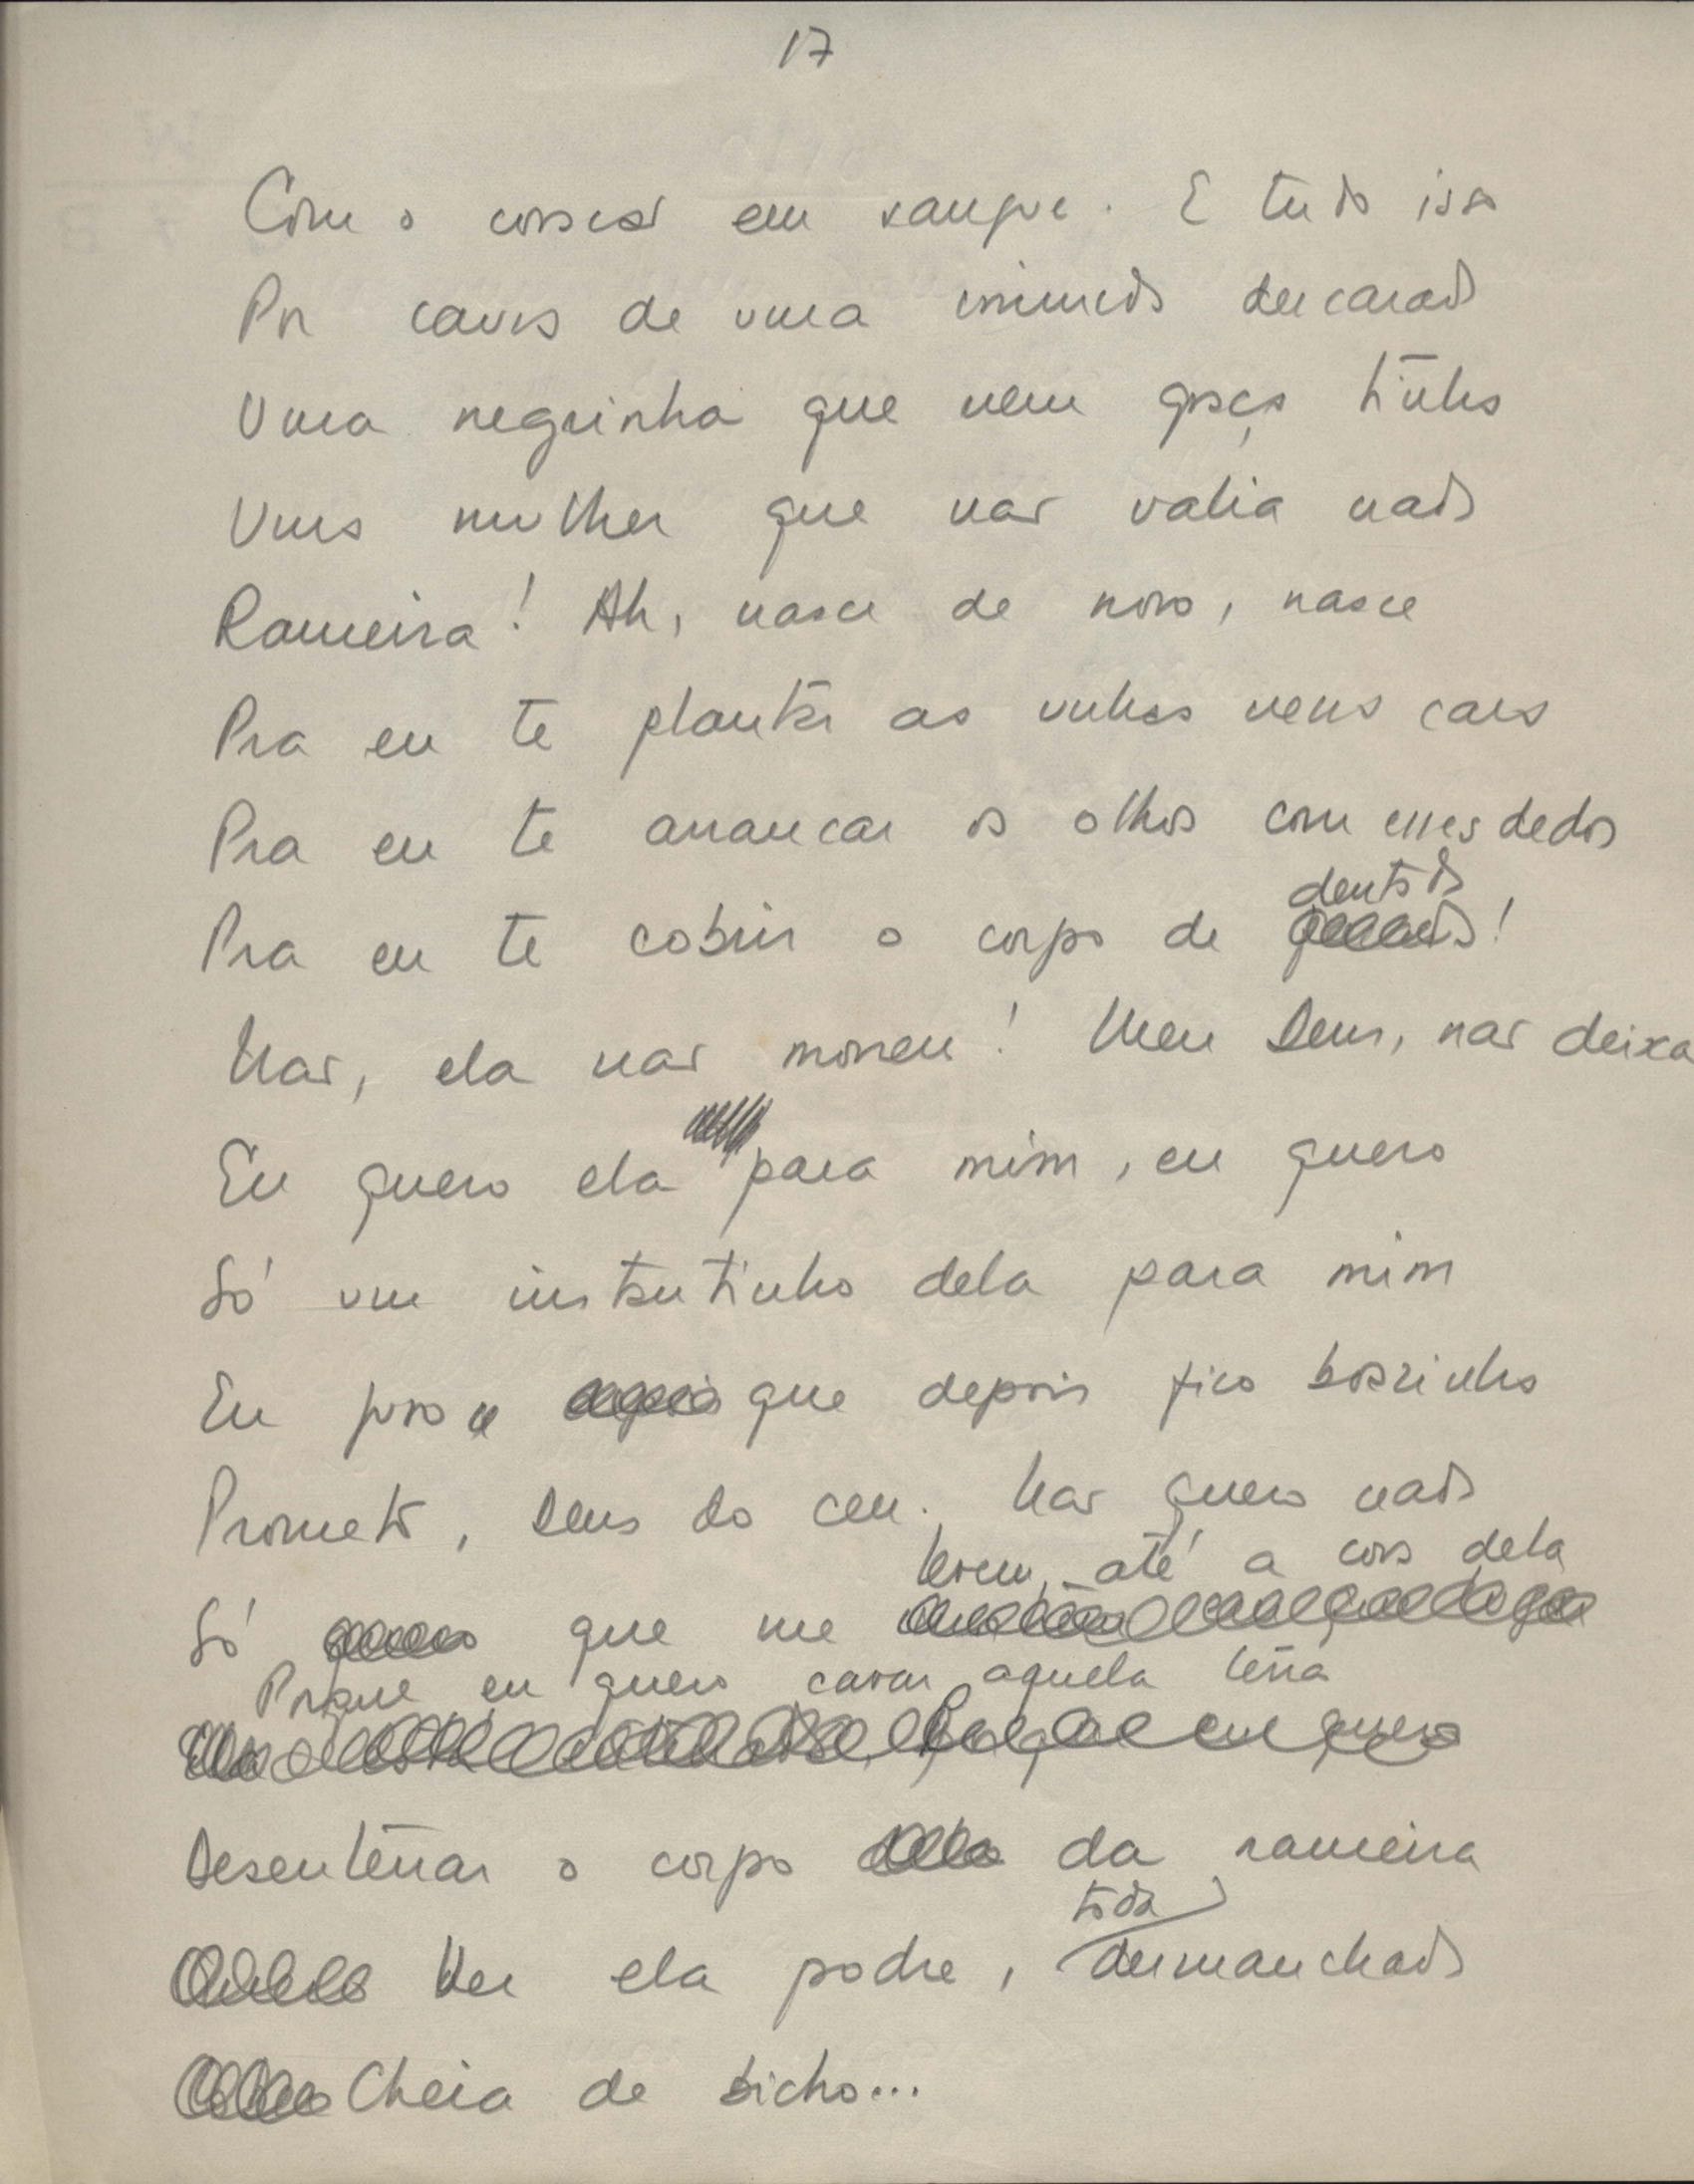 17
Com o coração em sangue. E tudo isso
Por causa de uma imunda descarada
Uma negrinha que nem graça tinha
Uma mulher que não valia nada
Rameira! Ah, nasce de novo, nasce
Pra eu te plantar as unhas nessa cara
Pra eu te arrancar os olhos com esses dedos
Pra eu te cobrir o corpo de dentada!
Não, ela não morreu! Meu Deus, não deixa
Eu quero ela para mim, eu quero
Só um instantinho dela para mim
Eu juro que depois fico boazinha
Prometo, Deus do ceu. Não quero nada
levem até a cova dela
Só que me
Porque eu quero cavar aquela terra
Porque eu quero
Desenterrar o corpo da rameira
toda
Ver ela podre, desmanchada
Cheia de bicho...